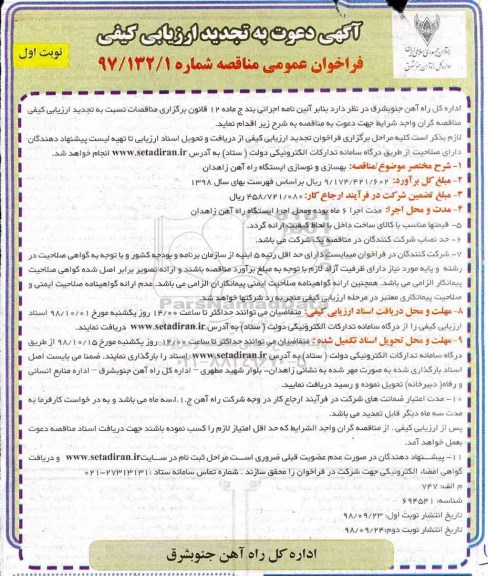 آگهی دعوت به تجدید ارزیابی کیفی
فراخوان عمومی مناقصه شماره ۹۷/۱۳۲/۱
نوبت اول
اداره کل راه آهن جنوبشرق در نظر دارد بنابر آئین نامه اجرائی بند ج ماده ۱۲ قانون برگزاری مناقصات نسبت به تجدید ارزیابی کیفی
مناقصه گران واجد شرایط جهت دعوت به مناقصه به شرح زیر اقدام نماید.
لازم بذکر است کلیه مراحل برگزاری فراخوان تجدید ارزیابی کیفی از دریافت و تحویل اسناد ارزیابی تا تهیه لیست پیشنهاد دهندگان
دارای صلاحیت از طریق درگاه سامانه تدارکات الکترونیکی دولت ( ستاد) به آدرس www.setadiran.ir انجام خواهد شد.
۱- شرح مختصر موضوع/مناقصه: بهسازی و نوسازی ایستگاه راه آهن زاهدان
۲- مبلغ کل برآورد: ۹/۱۷۴/۴۲۱/۶۰۲ ریال براساس فهرست بهای سال ۱۳۹۸
۳- مبلغ تضمین شرکت در فرآیند ارجاع کار: ۴۵۸/۷۲۱/۰۸۰ ریال
۴- مدت و محل اجرا: مدت اجرا ۶ ماه بوده ومحل اجرا ایستگاه راه آهن زاهدان
۵- قیمتها متناسب با کالای ساخت داخل با لحاظ کیفیت ارائه گردد.
۶- حد نصاب شرکت کنندگان در مناقصه یک شرکت می باشد.
۷- شرکت کنندگان در فراخوان میبایست دارای حد اقل رتبه ۵ ابنیه از سازمان برنامه و بودجه کشور و با توجه به گواهی صلاحیت در
رشته و پایه مورد نیاز دارای ظرفیت آزاد لازم با توجه به مبلغ برآورد مناقصه باشند و ارائه تصویر برابر اصل شده گواهی صلاحیت
پیمانکار الزامی می باشد. همچنین ارائه گواهینامه صلاحیت ایمنی پیمانکاران الزامی می باشد. عدم ارائه گواهینامه صلاحیت ایمنی و
صلاحیت پیمانکاری معتبر در مرحله ارزیابی کیفی منجر به رد شرکتها خواهد شد.
۸- مهلت و محل دریافت اسناد ارزیابی کیفی: متقاضیان می توانند حداکثر تا ساعت ۱۴/۰۰ روز یکشنبه مورخ ۹۸/۱۰/۰۱ اسناد
ارزیابی کیفی را از درگاه سامانه تدارکات الکترونیکی دولت ( ستاد) به آدرس www.setadiran.ir دریافت نمایند.
۹- مهلت و محل تحویل اسناد تکمیل شده: متقاضیان می توانند حداکثر تا ساعت ۱۴/۰۰ روز یکشنبه مورخ ۹۸/۱۰/۱۵ از طریق
درگاه سامانه تدارکات الکترونیکی دولت ( ستاد) به آدرس www.setadiran.ir اسناد را بارگذاری نمایند. ضمنا می بایست اصل
اسناد بارگذاری شده به صورت مهر شده به نشانی زاهدان- بلوار شهید مطهری – اداره کل راه آهن جنوبشرق – اداره منابع انسانی
و رفاه( دبیرخانه) تحویل نموده و رسید دریافت نمایید.
۱۰- مدت اعتبار ضمانت های شرکت در فرآیند ارجاع کار در وجه شرکت راه آهن ج.ا.ا. سه ماه می باشد و به در خواست کارفرما به
مدت سه ماه دیگر قابل تمدید می باشد.
پس از ارزیابی کیفی، از مناقصه گران واجد الشرایط که حد اقل امتیاز لازم را کسب نموده باشند جهت دریافت اسناد مناقصه دعوت
بعمل خواهد آمد.
۱۱- پیشنهاد دهندگان در صورت عدم عضویت قبلی ضروری است مراحل ثبت نام در سایت www.setadiran.ir و دریافت
گواهی امضاء الکترونیکی جهت شرکت در فراخوان را محقق سازند . شماره تماس سامانه ستاد :۲۷۳۱۳۱۳۱-۰۲۱
م الف: ۷۴۷
شناسه: ۶۹۴۵۴۱
تاریخ انتشار نوبت اول: ۹۸/۰۹/۲۳
تاریخ انتشار نوبت دوم: ۹۸/۰۹/۲۴
اداره کل راه آهن جنوبشرق